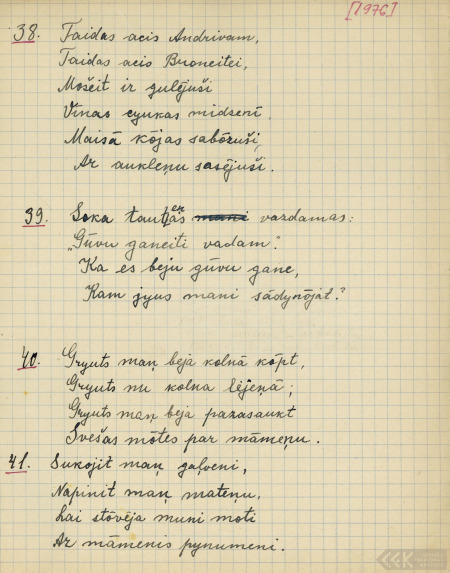 [1976]
38. Taidas acis Andrivam,
Taidas acis Broncitei,
Mošeit ir gulejuši
Vinas cyukas midzenī.
Maisā kojas sabōzuši,
Ar aukleņu sasējuši.
39. Soka tautīas en mani vazdamas:
"Gūvu ganeiti vadam".
Ka es beju gūvu gane,
Kam jyus mani sādynōjat?
40. Gryuts maņ beja kolnā kōpt,
Gryuts nu kolna lejeņā;
Gryuts maņ beja pazasaukt
Svešas mōtes par māmeņu.
41. Sukojit maņ gaļveni,
Napinit maņ mateņu,
Lai stōvēja muni moti
Ar māmenis pynumeni.